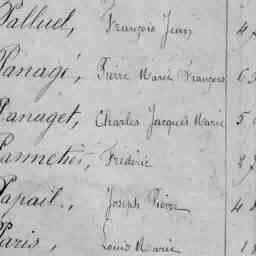 Palluel, François Jean 4
Panagé, Pierre Marie François 6
Panaget, Charles Jacques Marie 5
Pannetier, Frédéric
Papail, Joseph Pierre 4
Paris, Louis Marie 1